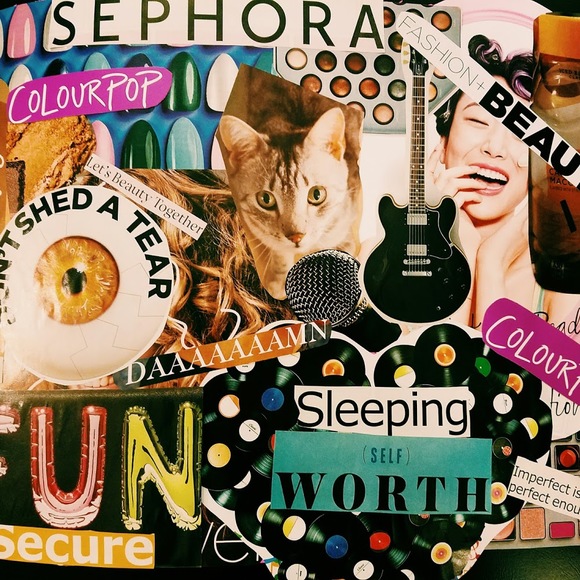 SEPHORA
FASHION +
BEAU
COLOURPOP
Let's Beauty Together
N'T SHED A TEAR
DAAAAAAAMN
COLOURP
FUN
Sleeping
(SELF)
WORTH
Imperfect is
perfect enou
Secure